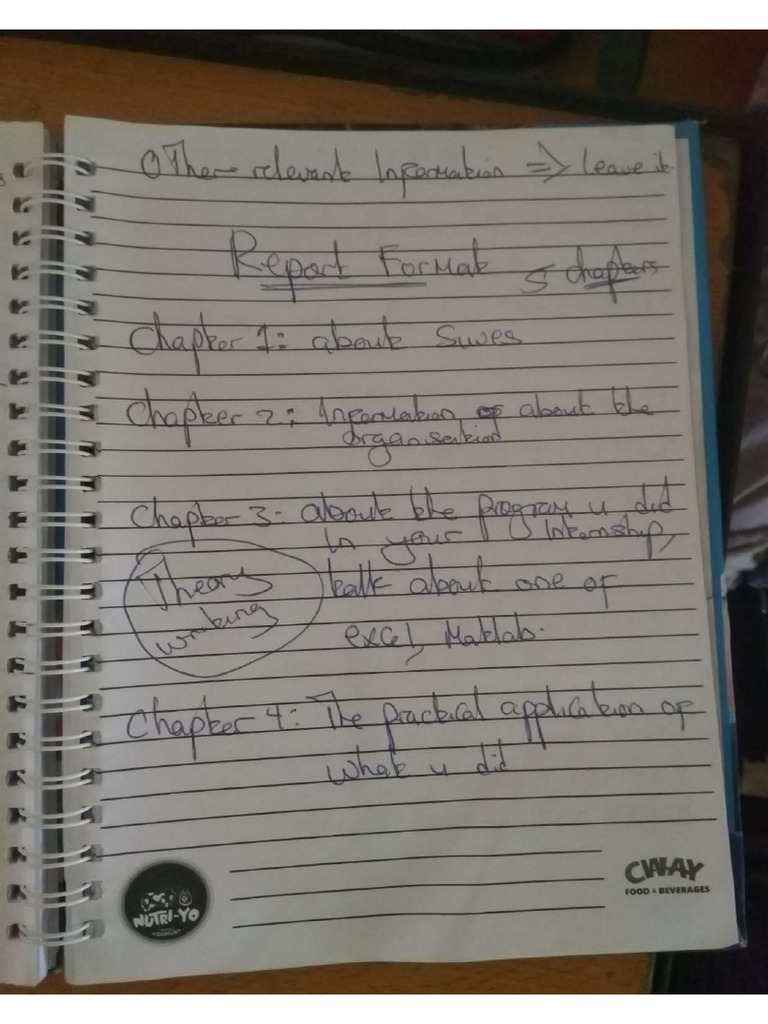 Other relevant Information => leave it
Report Format 5 chapters
Chapter 1: about Siwes
Chapter 2: Information of about the
organisation
Chapter 3: about the program u did
in your Internship,
Theory talk about one of
working excel, Matlab.
Chapter 4: The practical application of
what u did
NUTRI-YO
YOGHURT
CWAY
FOOD & BEVERAGES